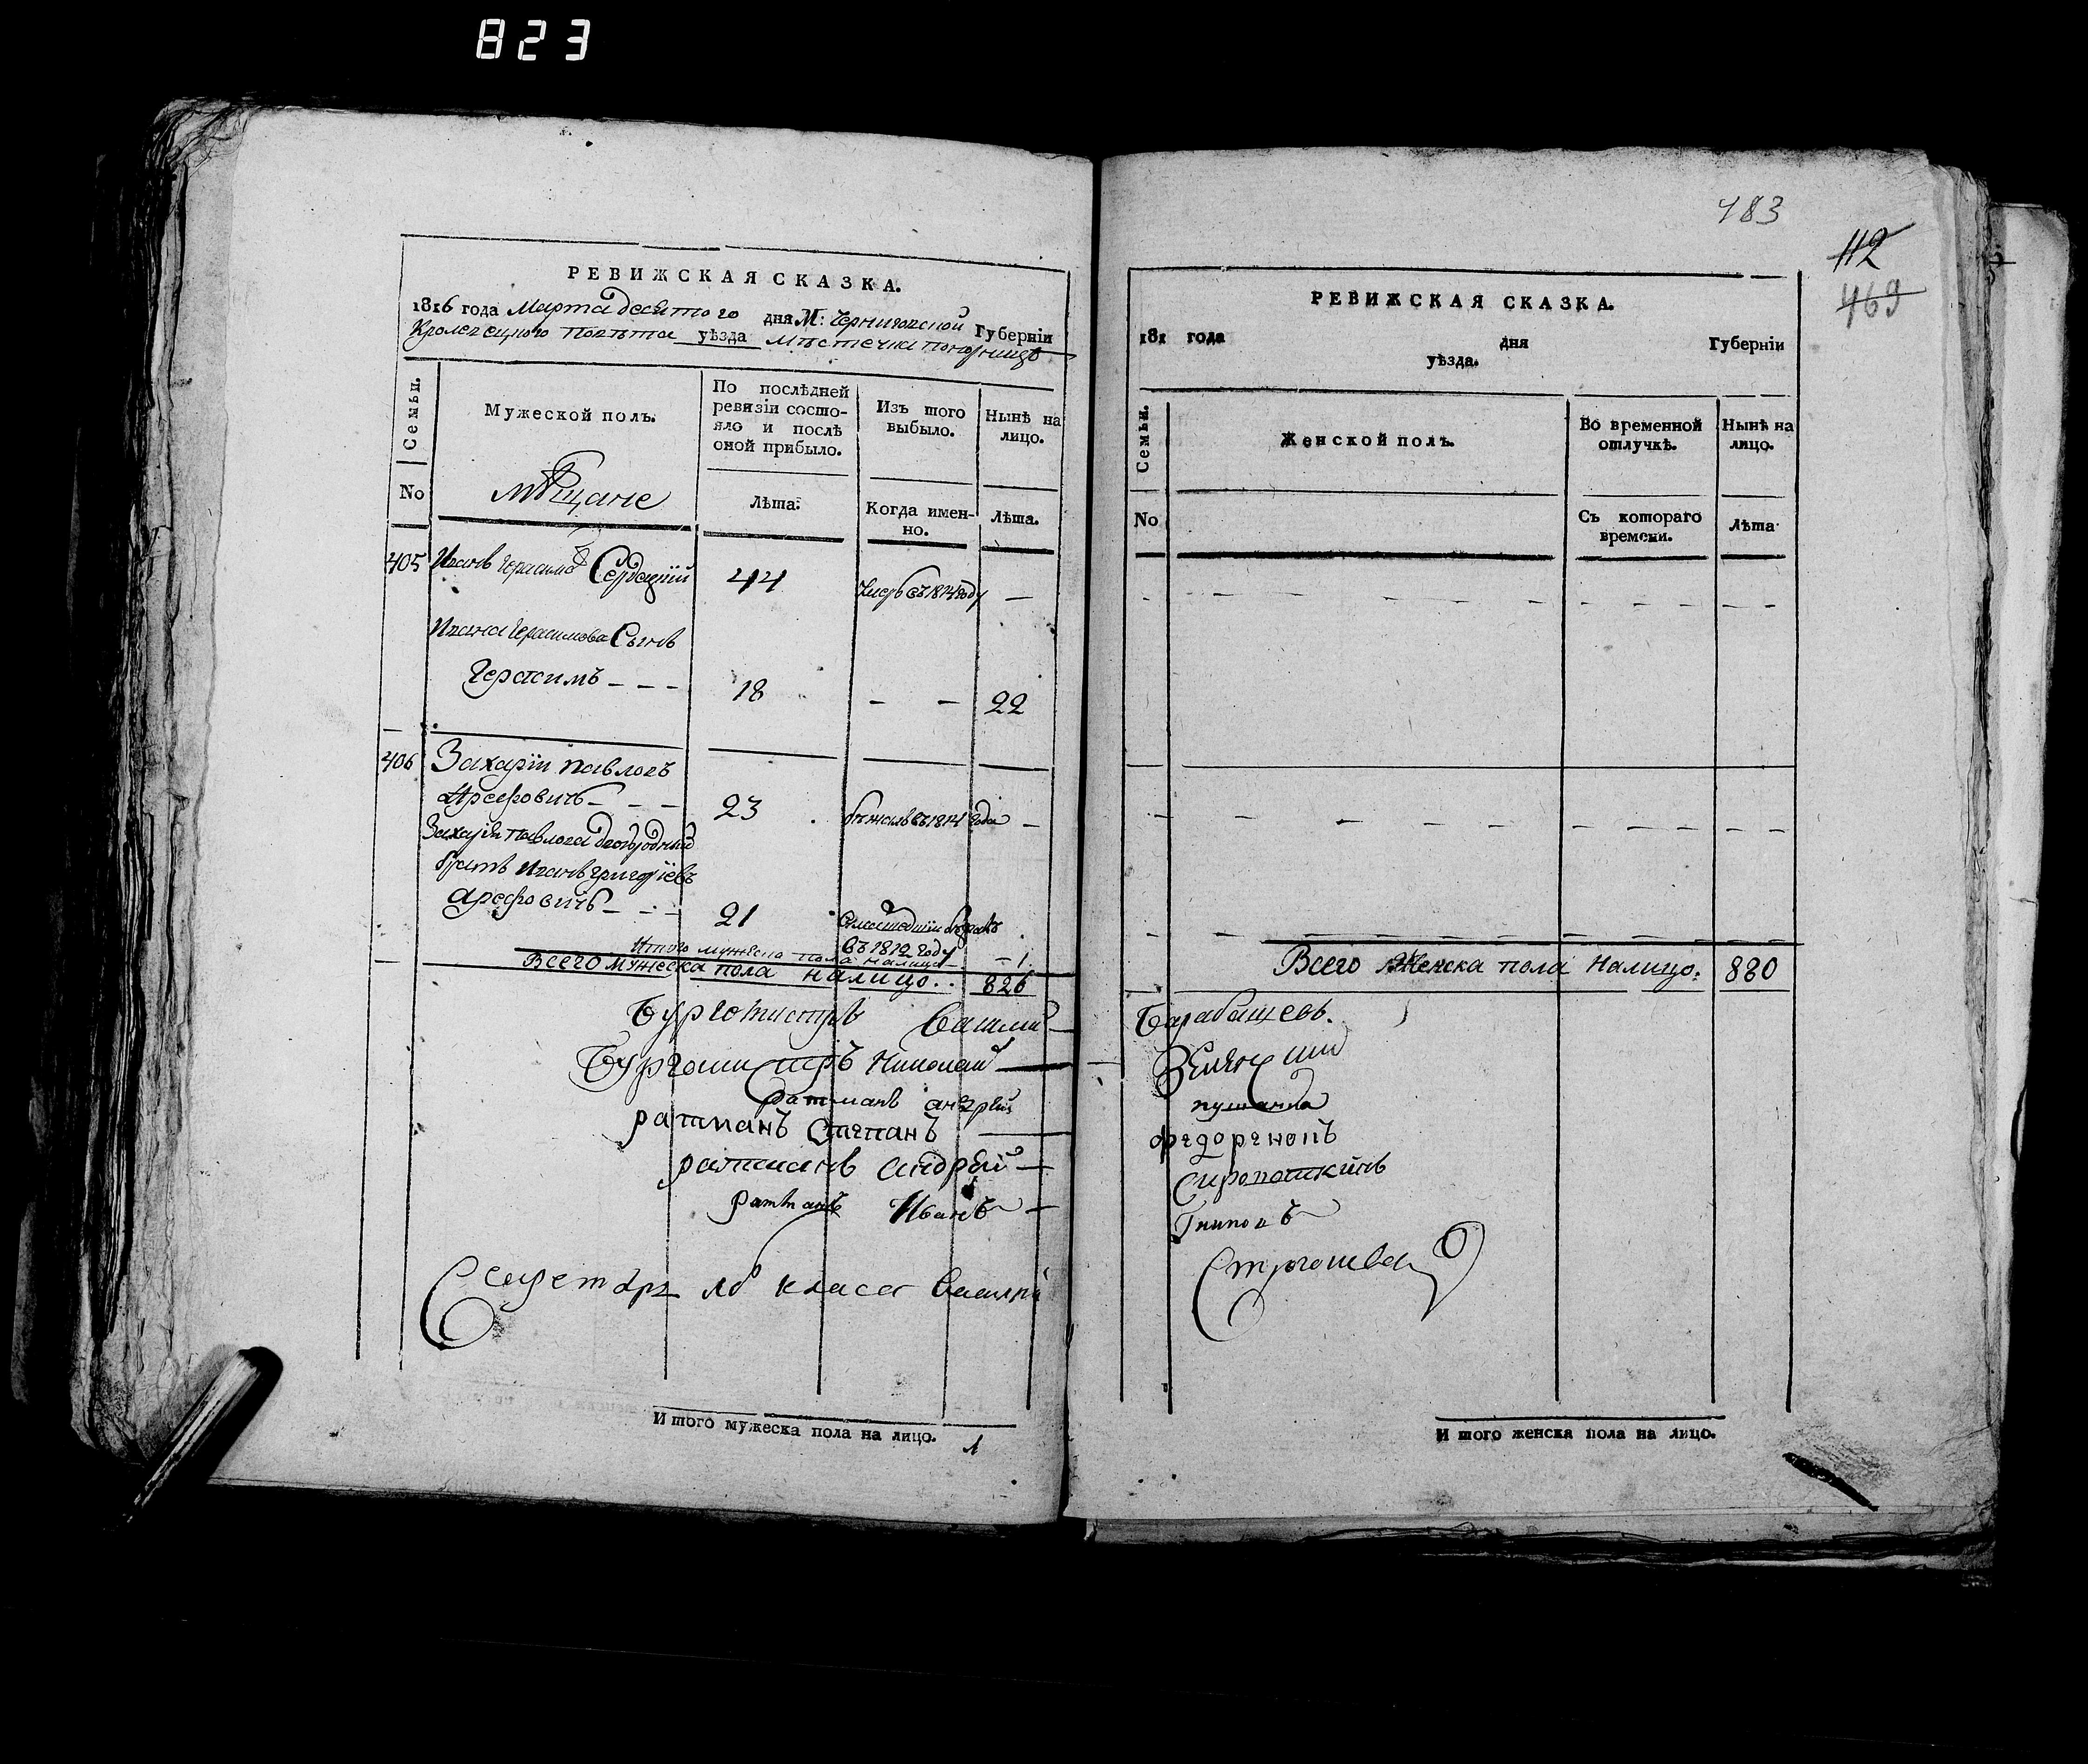 823
РЕВИЖСКАЯ СКАЗКА.
1816 года Марта десятого дня М: Черниговской Губерніи
Кролевецкого повѣта уѣзда мѣстечка Понорницѣ
Семьи.
Мужеской полъ.
По послѣдней ревизіи состояло и послѣ оной прибыло.
Изъ того выбыло.
Нынѣ на лицо.
No
Мѣщане
Лѣта.
Когда именно.
Лѣта.
405 Иванъ Герасимовъ 44 въ 1814 году —
Ивана Герасимова Сынъ
Герасимъ - - - 18 - - 22
406 Захарій Павловъ
Арефовичъ - - - 23 бѣжалъ въ 1814 года —
Захарія Павлова двоюродный
братъ Иванъ Григоріевъ
Арефовичъ - - - 21
въ 1812 году
Итого мужеска пола налицо - 1.
Всего мужеска пола налицо.. 826
Бургомистръ Василий —
Бургомистръ Николай —
ратманъ андрей
ратманъ Степанъ —
ратманъ андрей —
ратманъ Иванъ —
Секретарь класса Василий
Итого мужеска пола на лицо. 1
483
112
469
РЕВИЖСКАЯ СКАЗКА.
181 года дня Губерніи
уѣзда.
Семьи.
Женской полъ.
Во временной отлучкѣ.
Нынѣ на лицо.
No
Съ котораго времени.
Лѣта
Всего Женска пола Налицо: 880
Барабашевъ.
федоренопъ
Сиропаткинъ
Итого женска пола на лицо.